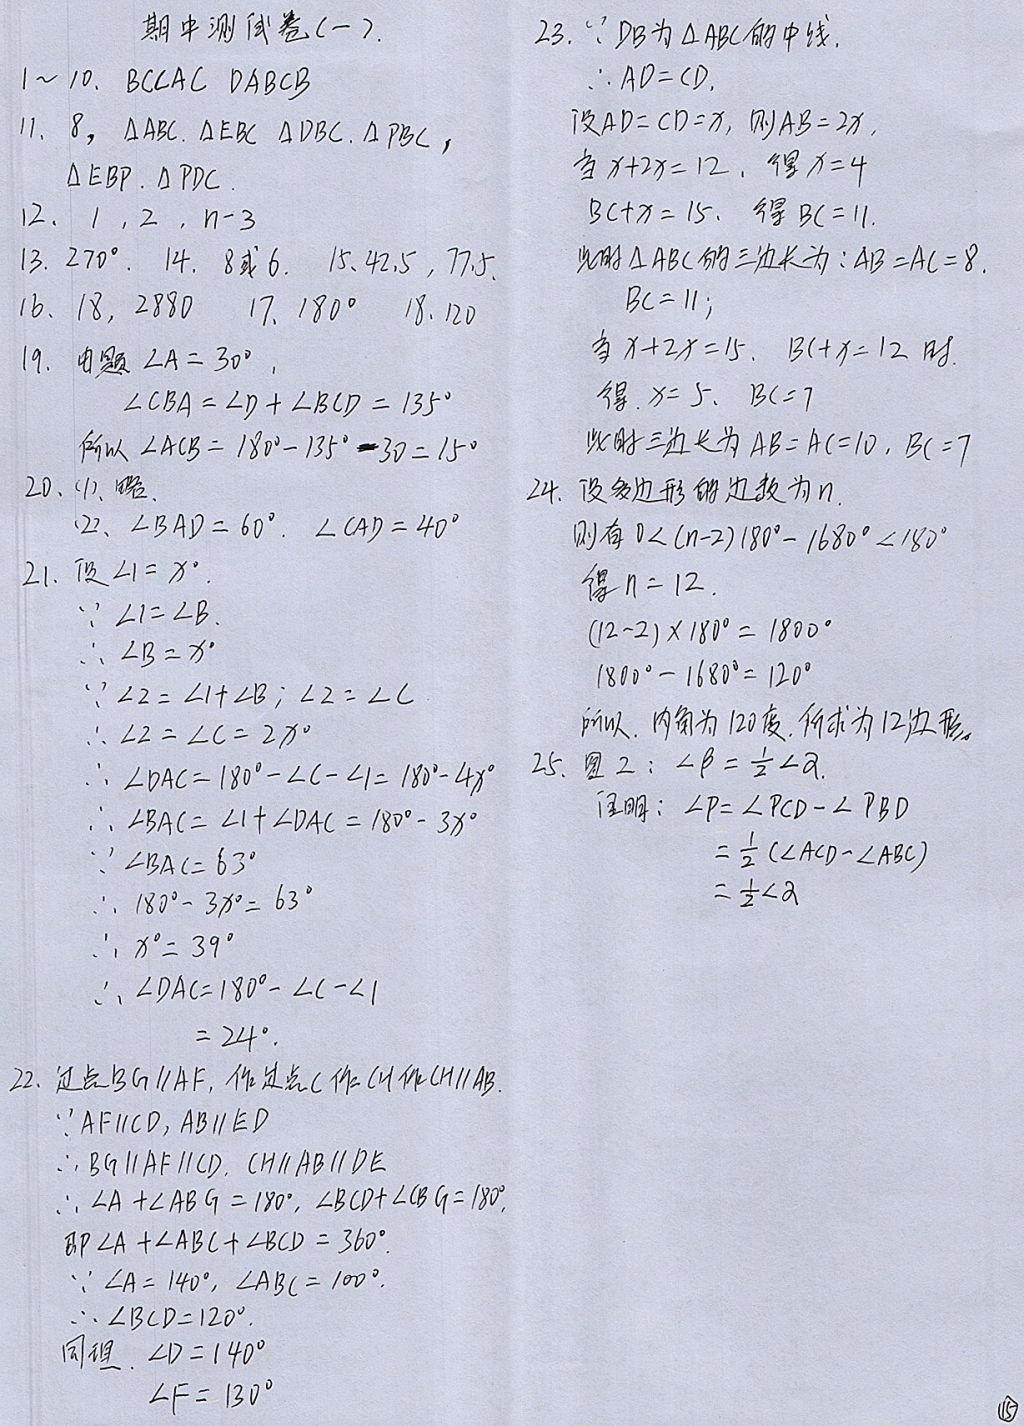 期中测试卷(一).
1~10. BCCAC DABCB
11. 8, △ABC. △EBC △DBC. △PBC,
△EBP. △PDC.
12. 1, 2, n-3
13. 270°. 14. 8或6. 15. 42.5, 77.5.
16. 18, 2880 17. 180° 18. 120
19. 由题 ∠A=30°,
∠CBA=∠D+∠BCD=135°
所以 ∠ACB=180°-135°-30=15°
20. (1). 略.
(2). ∠BAD=60°. ∠CAD=40°
21. 设∠1=x°.
∵ ∠1=∠B.
∴ ∠B=x°
∵ ∠2=∠1+∠B; ∠2=∠C
∴ ∠2=∠C=2x°
∴ ∠DAC=180°-∠C-∠1=180°-4x°
∴ ∠BAC=∠1+∠DAC=180°-3x°
∵ ∠BAC=63°
∴ 180°-3x°=63°
∴ x°=39°
∴ ∠DAC=180°-∠C-∠1
=24°.
22. 过点BG//AF, 作过点C作CH作CH//AB.
∵AF//CD, AB//ED
∴BG//AF//CD. CH//AB//DE
∴∠A+∠ABG=180°, ∠BCD+∠CBG=180°,
即∠A+∠ABC+∠BCD=360°.
∵ ∠A=140°, ∠ABC=100°.
∴ ∠BCD=120°.
同理. ∠D=140°
∠F=130°
23. ∵DB为△ABC的中线.
∴AD=CD.
设AD=CD=x, 则AB=2x,
当x+2x=12. 得x=4
BC+x=15. 得BC=11.
此时△ABC的三边长为:AB=AC=8.
BC=11;
当x+2x=15. BC+x=12时.
得.x=5. BC=7
此时三边长为AB=AC=10, BC=7
24. 设多边形的边数为n.
则有0<(n-2)180°-1680°<180°
得n=12.
(12-2)×180°=1800°
1800°-1680°=120°
所以.内角为120度.所求为12边形。
25. 图2: ∠β=½∠α.
证明: ∠P=∠PCD-∠PBD
=½(∠ACD-∠ABC)
=½∠α
15